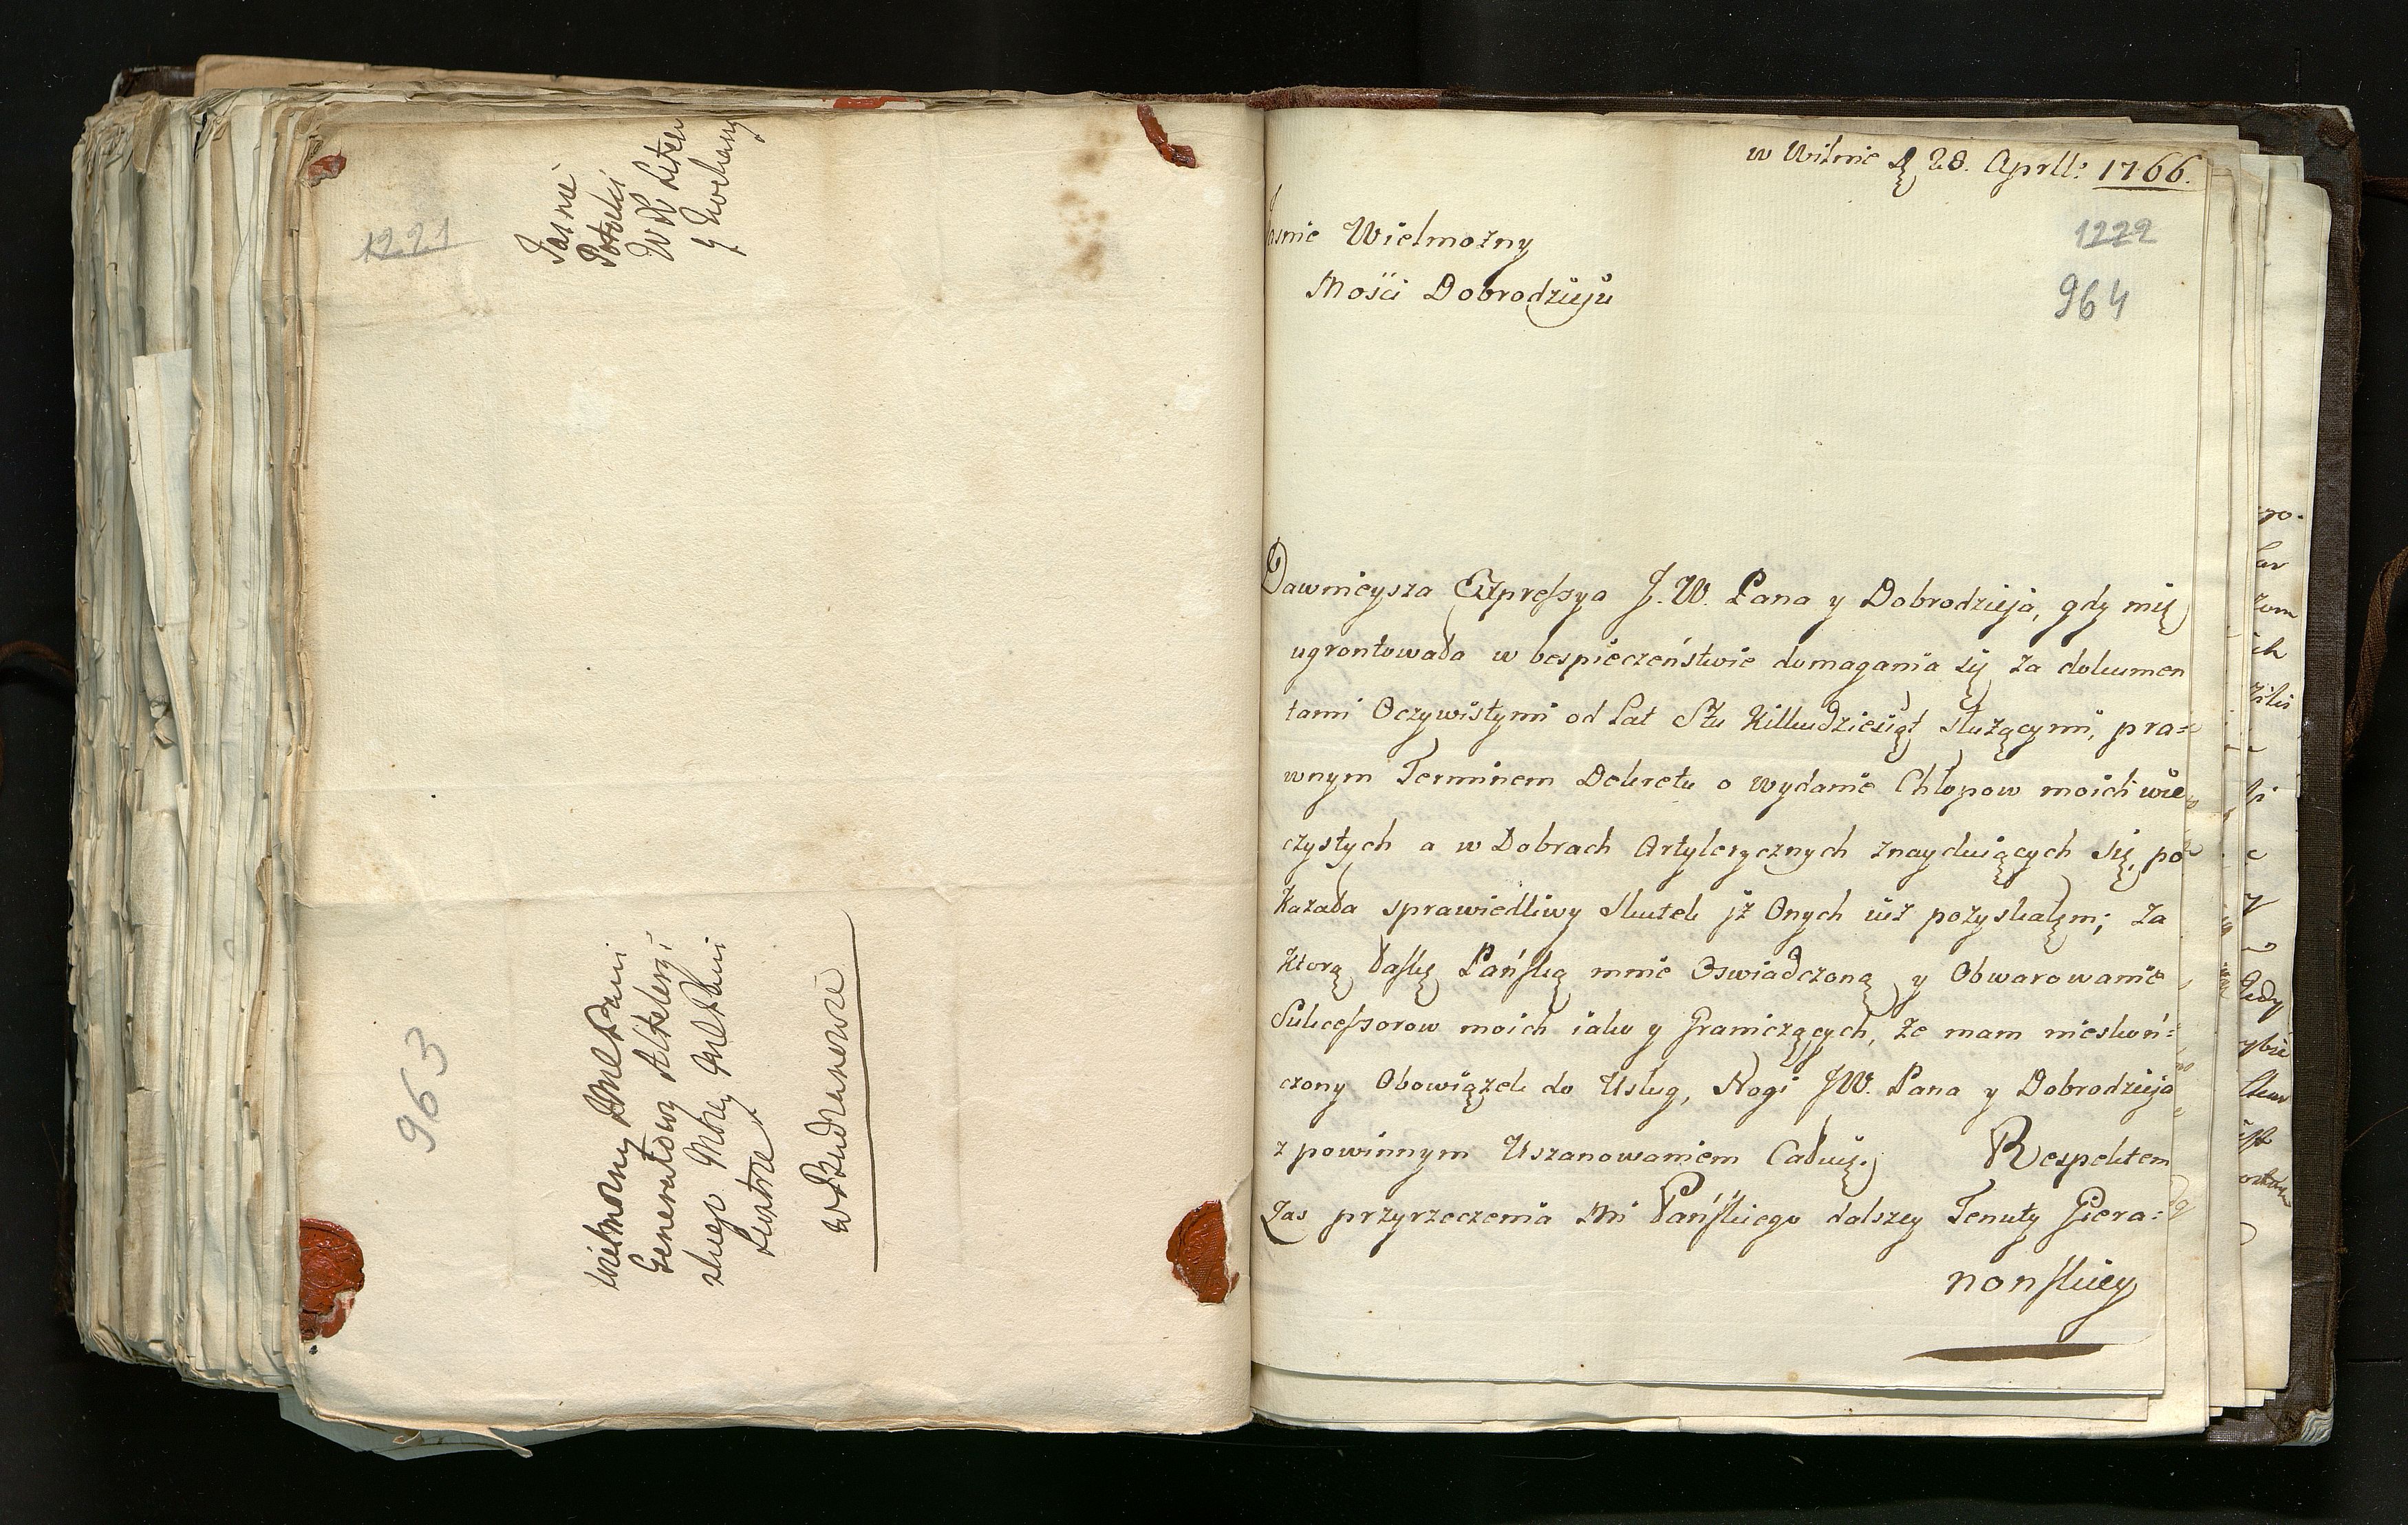 1221
Jasnie
Potocki
W X Liter
y kochany
963
Wielmozny JMC Pani
Generałowy Artelery i
skiego Mbrey Pani
w Budzanowie
w Wilnie d 28. Aprll: 1766.
1222
964
Jasnie Wielmozny
Mości Dobrodzieju
Dawnieysza Expressya J. W. Pana y Dobrodzieja, gdy mię
ugrontowała w bespieczeństwie domagania się za dokumen
tami Oczywistymi od Lat Stu Kilkudziesiąt służącymi, pra=
wnym Terminem Dekretu o wydanie Chłopow moich wie
czystych a w Dobrach Artylerycznych znayduiących się, po
kazała sprawiedliwy skutek jż Onych iuż pozyskałem; za
ktorą łaskę Pańską mnie Oswiadczoną y Obwarowanie
Sukcessorow moich iako y Graniczących, że mam nieskoń=
czony Obowiązek do Usług, Nogi JW. Pana y Dobrodzieja
z powinnym Uszanowaniem Całuię. Respektem
Zas przyrzeczenia Mi Pańskiego dalszey Tenuty Giera=
nonskiey